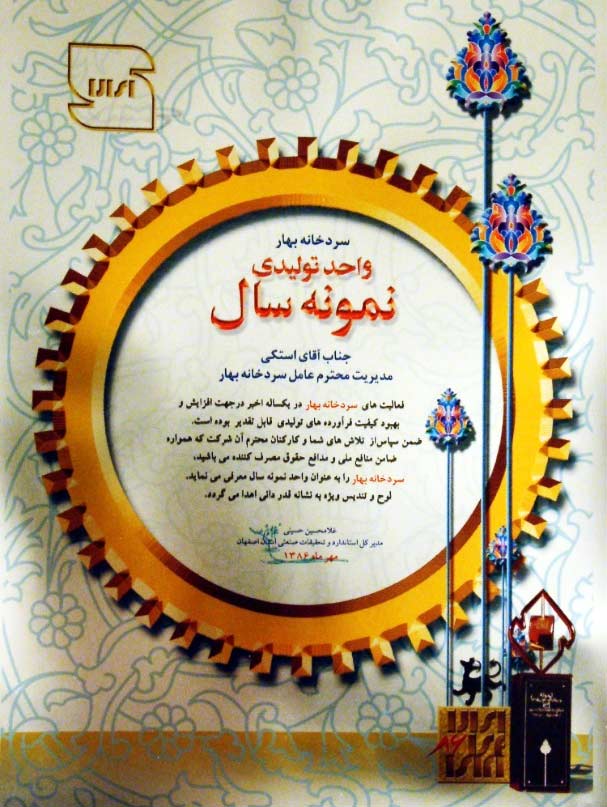 سردخانه بهار
واحد تولیدی
نمونه سال
جناب آقای استکی
مدیریت محترم عامل سردخانه بهار
فعالیت های سردخانه بهار در یکساله اخیر درجهت افزایش و
بهبود کیفیت فرآورده های تولیدی قابل تقدیر بوده است.
ضمن سپاس از تلاش های شما و کارکنان محترم آن شرکت که همواره
ضامن منافع ملی و مدافع حقوق مصرف کننده می باشید،
سردخانه بهار را به عنوان واحد نمونه سال معرفی می نماید.
لوح و تندیس ویژه به نشانه قدر دانی اهدا می گردد.
غلامحسین حسینی
مدیر کل استاندارد و تحقیقات صنعتی استان اصفهان
مهر ماه ۱۳۸۶
۸۶